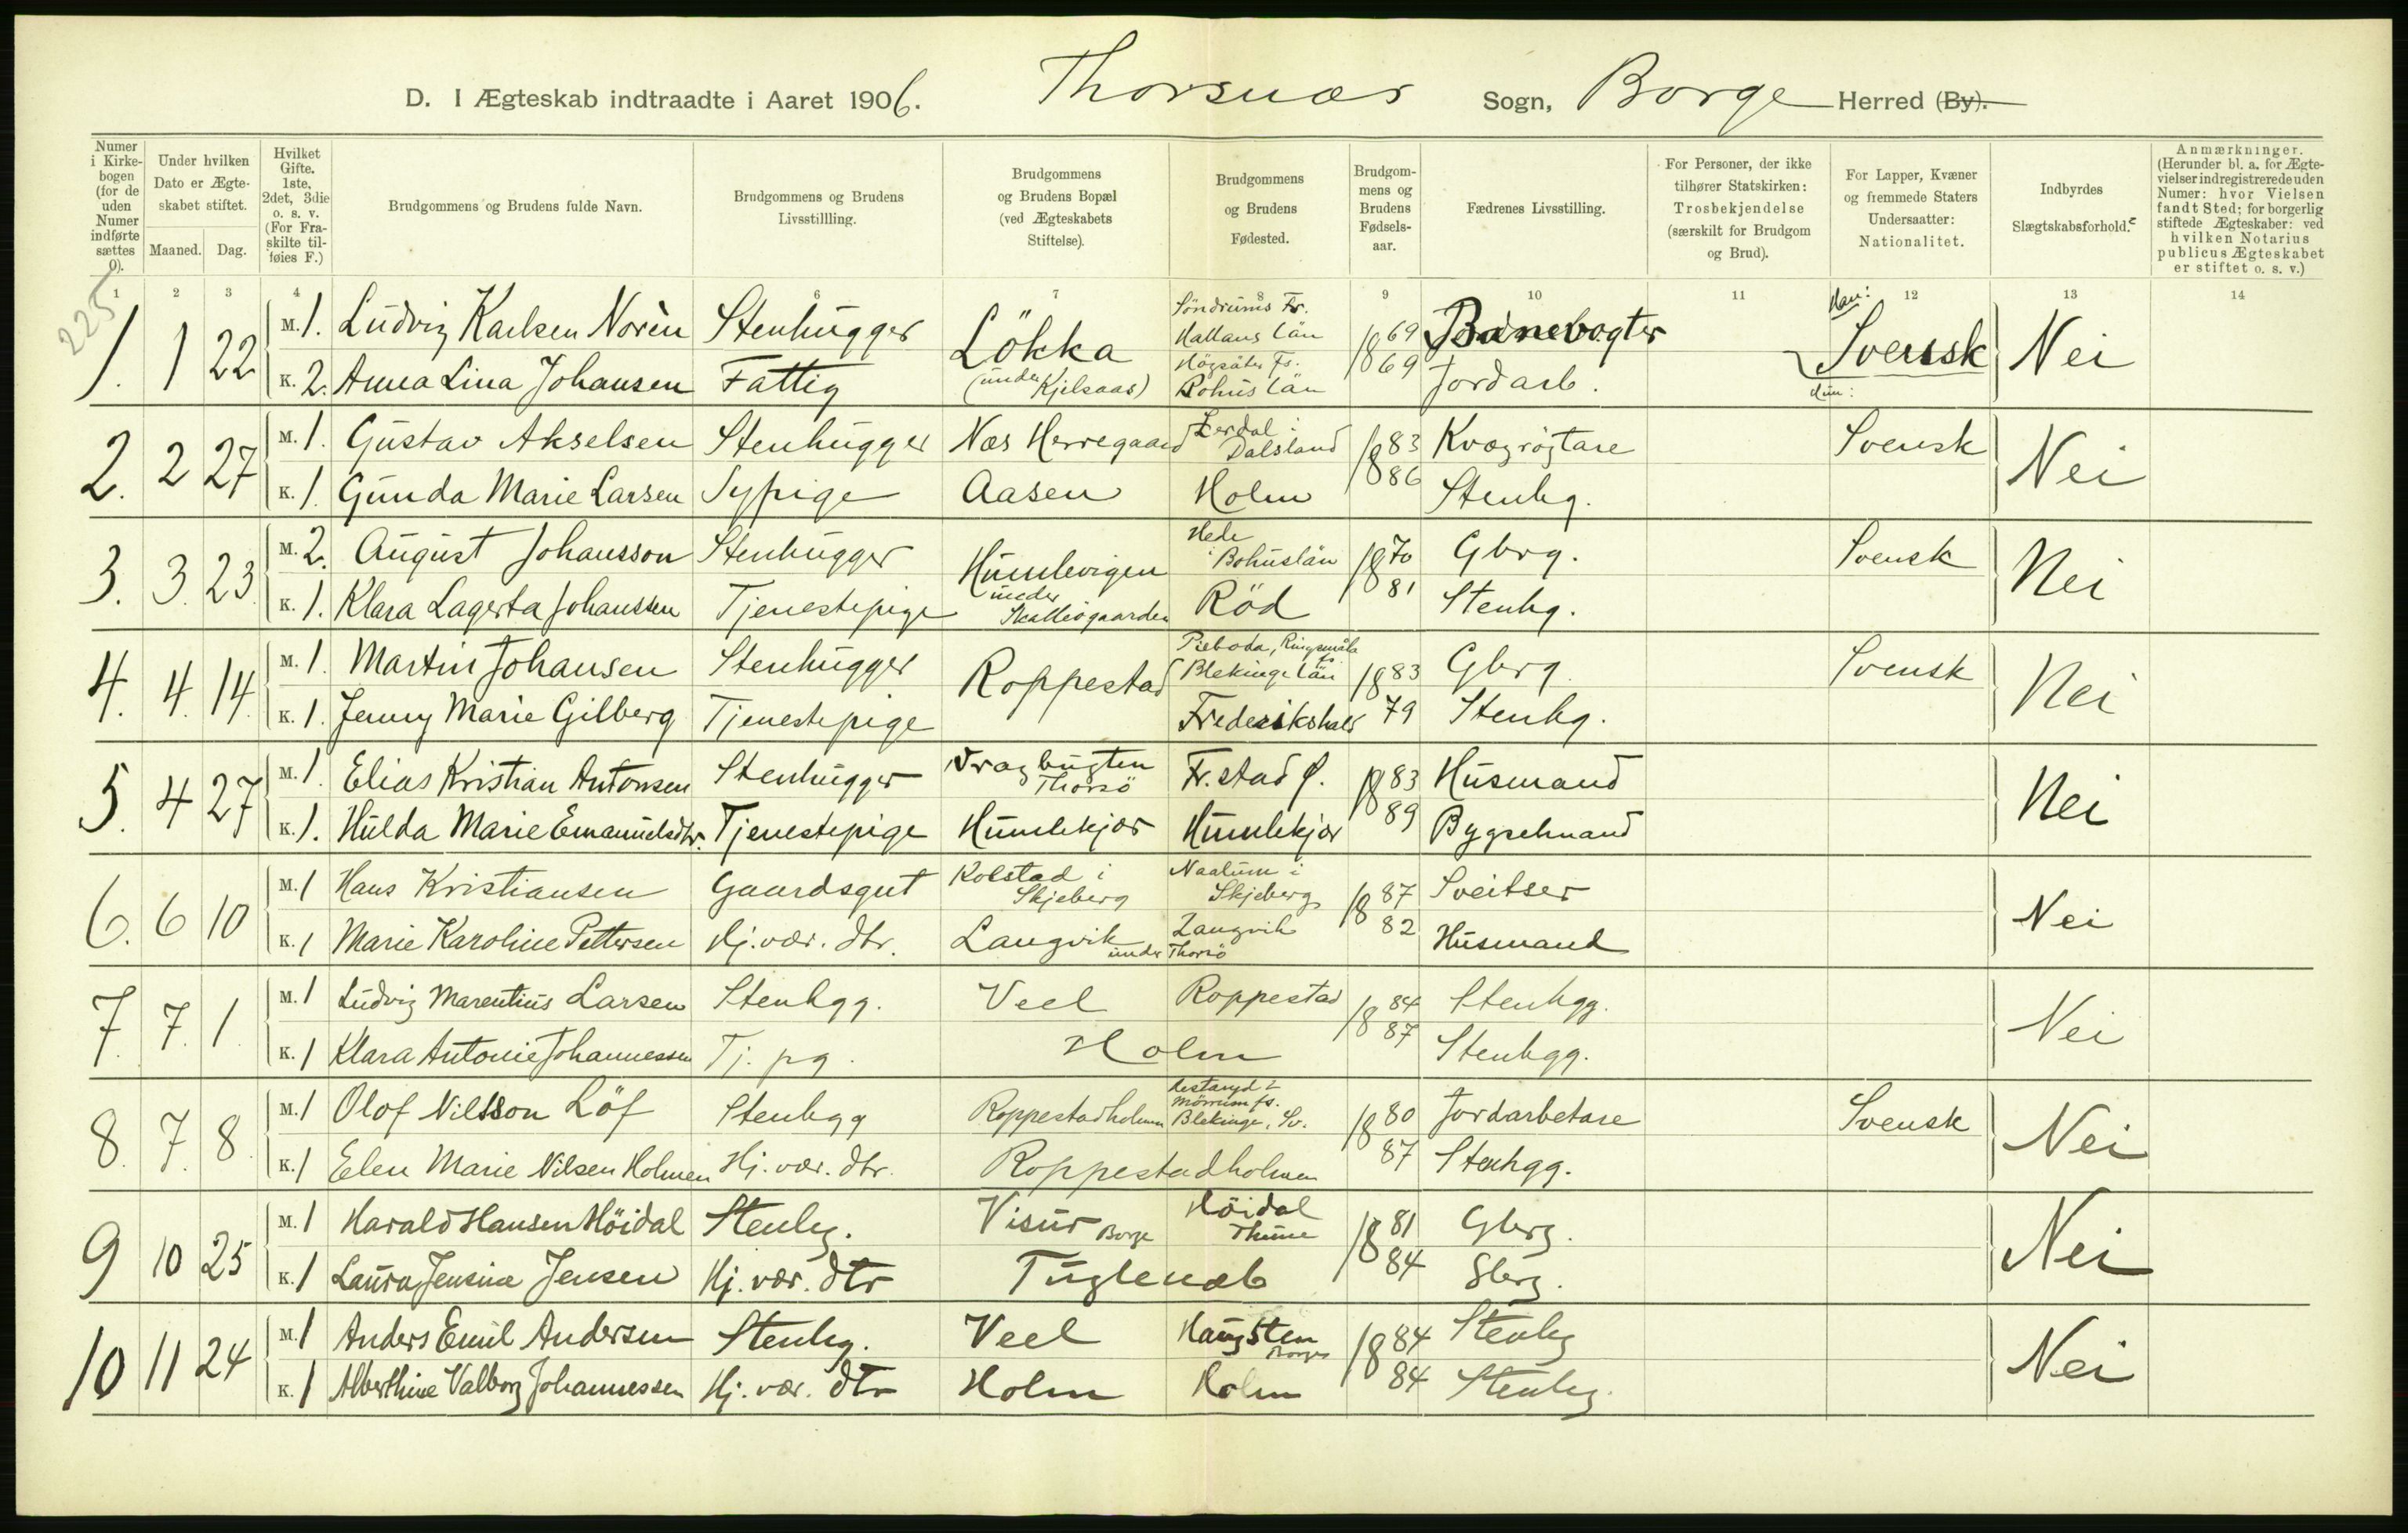 D. I Ægteskab indtraadte i Aaret 1906. Thorsnæs Sogn, Borge Herred (By).
Numer i Kirkebogen (for de uden Numer indførte sættes 0).
Under hvilken Dato er Ægteskabet stiftet.
Maaned. Dag.
Hvilket Gifte. 1ste, 2det, 3die o. s. v. (For Fraskilte tilføies F.)
Brudgommens og Brudens fulde Navn.
Brudgommens og Brudens Livsstillling.
Brudgommens og Brudens Bopæl (ved Ægteskabets Stiftelse).
Brudgommens og Brudens Fødested.
Brudgommens og Brudens Fødselsaar.
Fædrenes Livsstilling.
For Personer, der ikke tilhører Statskirken: Trosbekjendelse (særskilt for Brudgom og Brud).
For Lapper, Kvæner og fremmede Staters Undersaatter: Nationalitet.
Indbyrdes Slægtskabsforhold.
Anmærkninger. (Herunder bl. a. for Ægtevielser indregistrerede uden Numer: hvor Vielsen fandt Sted; for borgerlig stiftede Ægteskaber: ved hvilken Notarius publicus Ægteskabet er stiftet o. s. v.)
1 2 3 4 6 7 8 9 10 11 12 13 14
225
1. 1 22 M. 1. Ludvig Karlsen Norèn Stenhugger Lökka (under Kjelsaas) Söndrums Fs. Hallans län 1869 Banevogter Han: Svensk Nei
K. 2. Anna Lina Johansen Fattig Högsäter Fs. Bohus län 1869 Jordarb. Hun:
2. 2 27 M. 1. Gustav Akselsen Stenhugger Næs Herregaard Lerdal i Dalsland 1883 Kvægrøjtare Svensk Nei
K. 1. Gunda Marie Larsen Sypige Aasen Holm 1886 Stenhg.
3. 3. 23. M. 2. August Johansson Stenhugger Humlevigen under Skalleogaarden Hede i Bohuslän 1870 Gbrg. Svensk Nei
K. 1. Klara Lagerta Johanssen Tjenestepige Röd 81 Stenhg.
4. 4. 14. M. 1. Martin Johansen Stenhugger Roppestad Pieboda, Ringsmåla fs. Blekinge län 1883 Gbrg Svensk Nei
K. 1. Jenny Marie Gilberg Tjenestepige Frederikshald 79 Stenhg.
5. 4 27 M. 1. Elias Kristian Antonsen Stenhugger Dragbugten Thorsö Fr.stad Ø. 1883 Husmand Nei
K. 1. Hulda Marie Emanuelsdtr. Tjenestepige Humlekjær Humlekjær 89 Bygselmand
6. 6 10 M. 1 Hans Kristiansen Gaardsgut Kolstad i Skjeberg Naalum i Skjeberg 1887 Sveitser Nei
K. 1 Marie Karoline Pettersen Hj. vær. dtr. Langvik under Thorsö Langvik 82 Husmand
7. 7. 1. M. 1 Ludvig Marentius Larsen Stenhgg. Veel Roppestad 1884 Stenhgg. Nei
K. 1 Klara Antonie Johannessen Tj. pg. Holm 87 Stenhgg.
8. 7. 8. M. 1 Olof Nilsson Löf Stenhgg Roppestadholmen Mörrum fs. Blekinge, Sv. 1880 Jordarbetare Svensk Nei
K. 1 Elen Marie Nilsen Holmen Hj. vær. dtr. Roppestadholmen 87 Stenhgg.
9 10 25 M. 1 Harald Hansen Höidal Stenhg. Visur Borge Höidal Thune 1881 Gbrg. Nei
K. 1 Laura Jensine Jensen Hj. vær. dtr Tuglenæb 84 Sbrg.
10 11 24 M. 1 Anders Emil Andersen Stenhg. Veel Haugsten Borge 1884 Stenhg Nei
K. 1 Alberthine Valborg Johannessen Hj. vær. dtr Holm Holm 84 Stenhg.